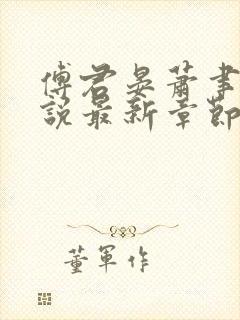 傅君晏蕭事
說最新章節
董軍作